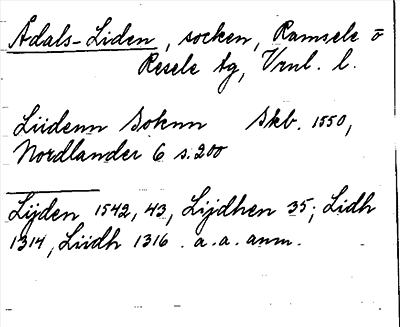 Ådals-Liden, socken, Ramsele o
Resele tg, Vrnl. l.
Liidenn Soknn Skb. 1550,
Nordlander 6 s. 200
Lijden 1542, 43, Lijdhen 35; Lidh
1314, Liidh 1316. a. a. anm.